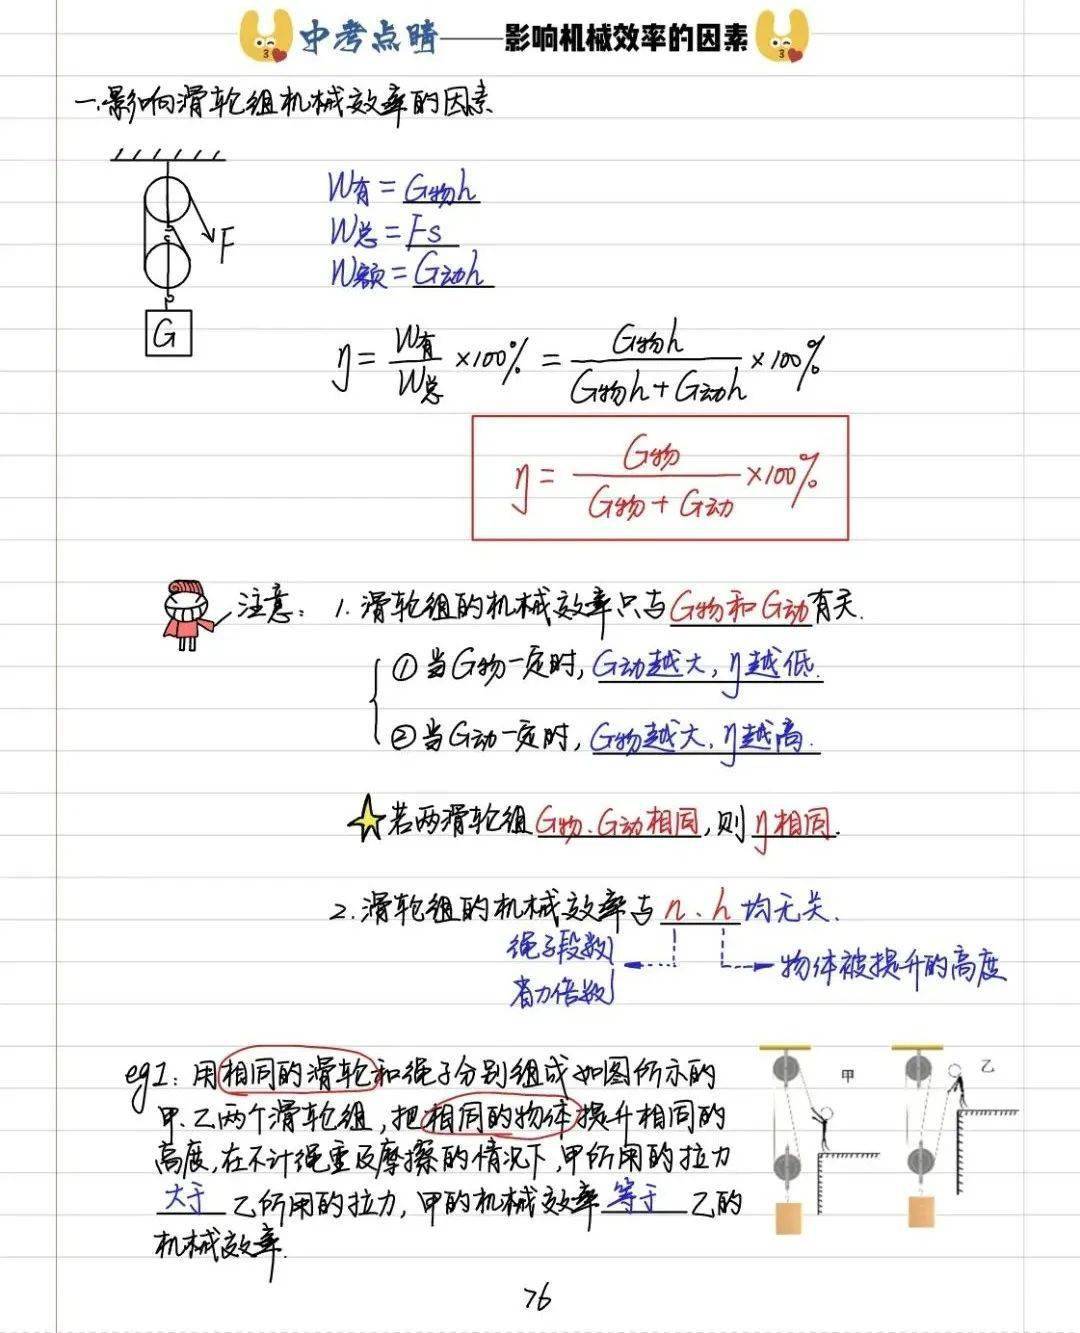 中考点睛——影响机械效率的因素
一.影响滑轮组机械效率的因素
F
G
W有=G物h
W总=Fs
W额=G动h
η=W有/W总×100%=G物h/(G物h+G动h)×100%
η=G物/(G物+G动)×100%
注意: 1.滑轮组的机械效率只与G物和G动有关.
①当G物一定时,G动越大,η越低.
②当G动一定时,G物越大,η越高.
若两滑轮组G物、G动相同,则η相同.
2.滑轮组的机械效率与n、h均无关.
绳子段数
省力倍数
物体被提升的高度
eg1:用相同的滑轮和绳子分别组成如图所示的
甲、乙两个滑轮组,把相同的物体提升相同的
高度,在不计绳重及摩擦的情况下,甲所用的拉力
大于乙所用的拉力,甲的机械效率等于乙的
机械效率.
甲
乙
76